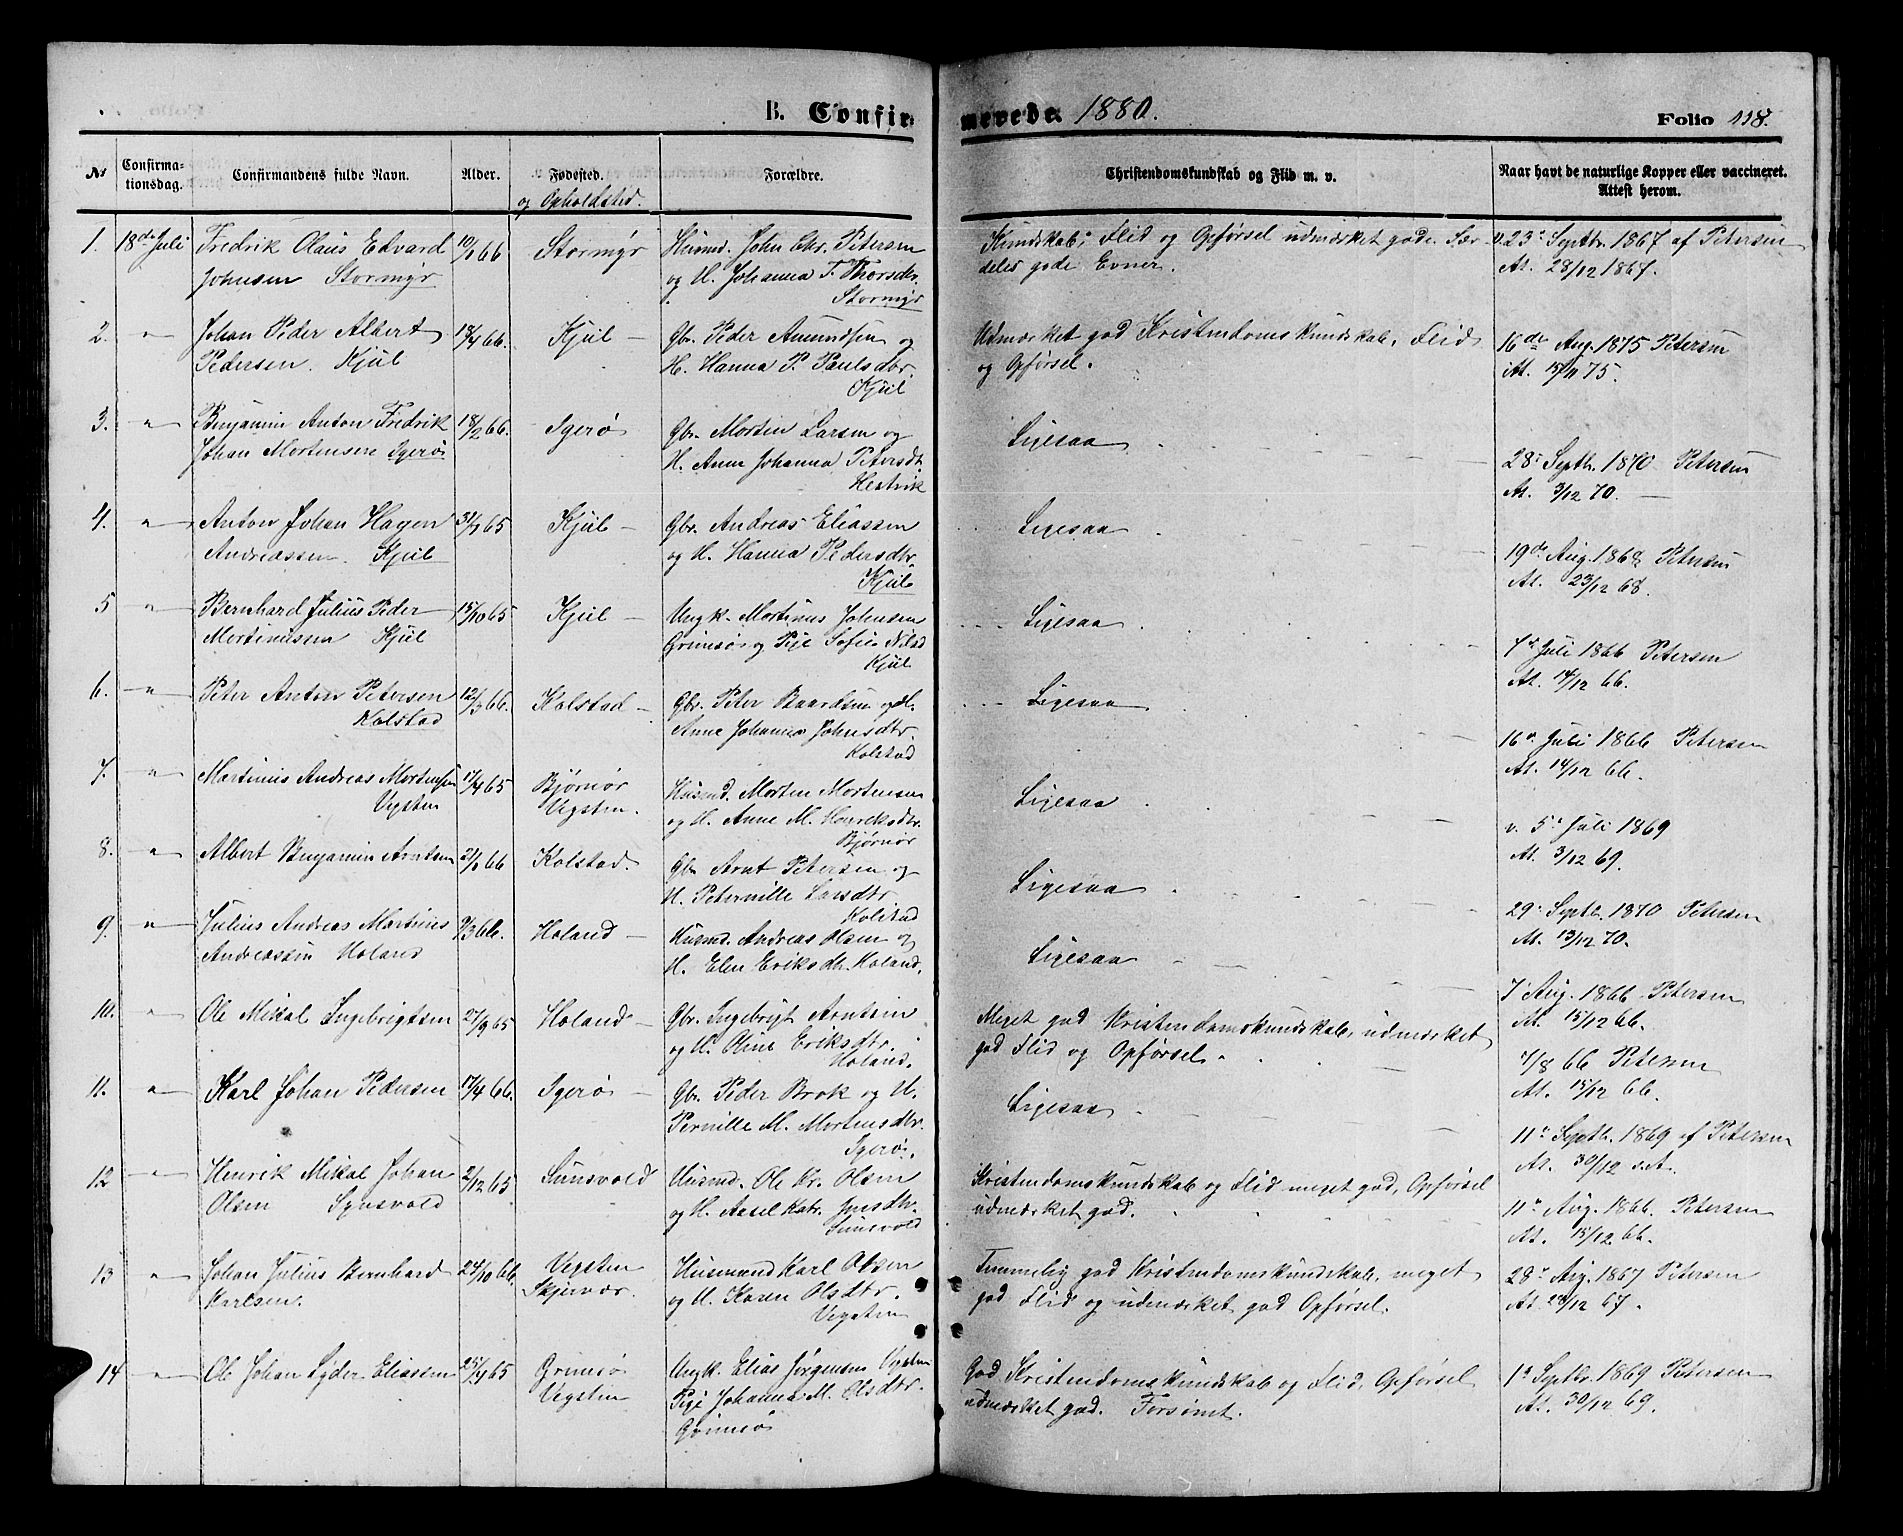 B. Confirmerede 1880.
Folio 118.
No
Confirmationsdag.
Confirmandens fulde Navn.
Alder.
Fødested.
og Opholdsted.
Forældre.
Christendomskundskab og Flid m. v.
Naar havt de naturlige Kopper eller vaccineret.
Attest herom.
1. 18de Juli Fredrik Olaus Edvard 10/1 66 Stormyr Husmd. John Chr. Petersen Kundskab, Flid og Opførsel udmærket gode. Sær- v. 23. Septbr. 1867 af Petersen
Johnsen Stormyr og H. Johanna T. Thorsdtr. deles gode Evner. At. 28/12 1867.
Stormyr
2. " Johan Peder Albert 18/4 66. Kjul Gbr. Peder Amundsen og Udmærket god Kristendomskundskab, Flid 16de Aug. 1875 Petersen
Pedersen. Kjul H. Hanna P. Paulsdtr. og Opførsel. At. 15/11 75.
Kjul
3. " Benjamin Anton Fredrik 18/2 66. Igerø Gbr. Morten Larsen og Ligesaa
Johan Mortensen Igerø H. Anne Johanna Petersdt. 28. Septbr. 1870 Petersen
Hestvik At. 3/12 70.
4. " Anton Johan Hagen 31/7 65 Kjul Gbr. Andreas Eliassen Ligesaa
Andreassen. Kjul og H. Hanna Pedersdtr. 19de Aug. 1868 Petersen
Kjul At. 23/12 68.
5 " Bernhard Julius Peder 15/10 65 Kjul Ungk. Martinus Johnsen Ligesaa
Mortinussen Kjul Grimsø og Pige Sofie Nilsd 7. Juli 1866 Petersen
Kjul At. 14/12 66.
6. " Peter Anton Petersen 12/3 66. Kolstad Gbr. Peter Baardsen og H. Ligesaa
Kolstad Anne Johanna Johnsdtr. 16. Juli 1866 Petersen
Kolstad At. 14/12 66.
7. " Martinus Andreas Mortensen 17/4 65 Bjørnør Husmd. Morten Mortensen Ligesaa
Vegsten Vegsten. og H. Anne M. Henriksdtr. v. 5. Juli 1869
Bjørnør At. 3/12 69.
8. " Albert Benjamin Arntsen 21/1 66 Kolstad. Gbr Arnt Petersen og Ligesaa
H. Peternille Larsdtr 29. Septbr. 1870 Petersen
Kolstad At. 13/12 70.
9. " Julius Andreas Martinus 9/3 66. Holand Husmd. Andreas Olsen og Ligesaa
Andreassen Holand H. Elen Eriksdtr. Holand. 7 Aug. 1866 Petersen
At. 15/12 66.
10. " Ole Mikal Ingebrigtsen 27/9 65 Holand Gbr. Ingebrigt Arntsen Meget god Kristendomskundskab, udmærket
og H. Oline Eriksdtr. god Flid og Opførsel. 7/8 66 Petersen
Holand. At. 15/12 66.
11. " Karl Johan Pedersen 17/4 66. Igerø Gbr. Peder Brok og H. Ligesaa
Pernille M. Mortensdtr. 11. Septbr. 1869 af Petersen
Igerø. At. 30/12 s. A.
12 " Henrik Mikal Johan 2/12 65 Sunsvold Husmd. Ole Kr. Olsen Kristendomskundskab og Flid meget god, Opførsel
Olsen Synsvold og H. Aasel Katr. Jensdtr. udmærket god. 11. Aug. 1866. Petersen
Sunsvold At. 15/12 66.
13 " Johan Julius Bernhard 24/10 66. Vegsten Husmand Karl Olsen Temmelig god Kristendomskundskab, meget 28. Aug. 1867 Petersen
Karlsen. Skjervær. og H. Karen Olsdtr. god Flid og udmærket god Opførsel. At. 28/12 67.
Vegsten
14 " Ole Johan Lyder Eliassen 25/9 65 Grimsø Ungk. Elias Jørgensen Vegsten God Kristendomskundskab og Flid, Opførsel 1. Septbr. 1869 Petersen
Vegsten Pige Johanna M. Olsdtr. udmærket god. Forsømt. At. 30/12 69.
Grimsø